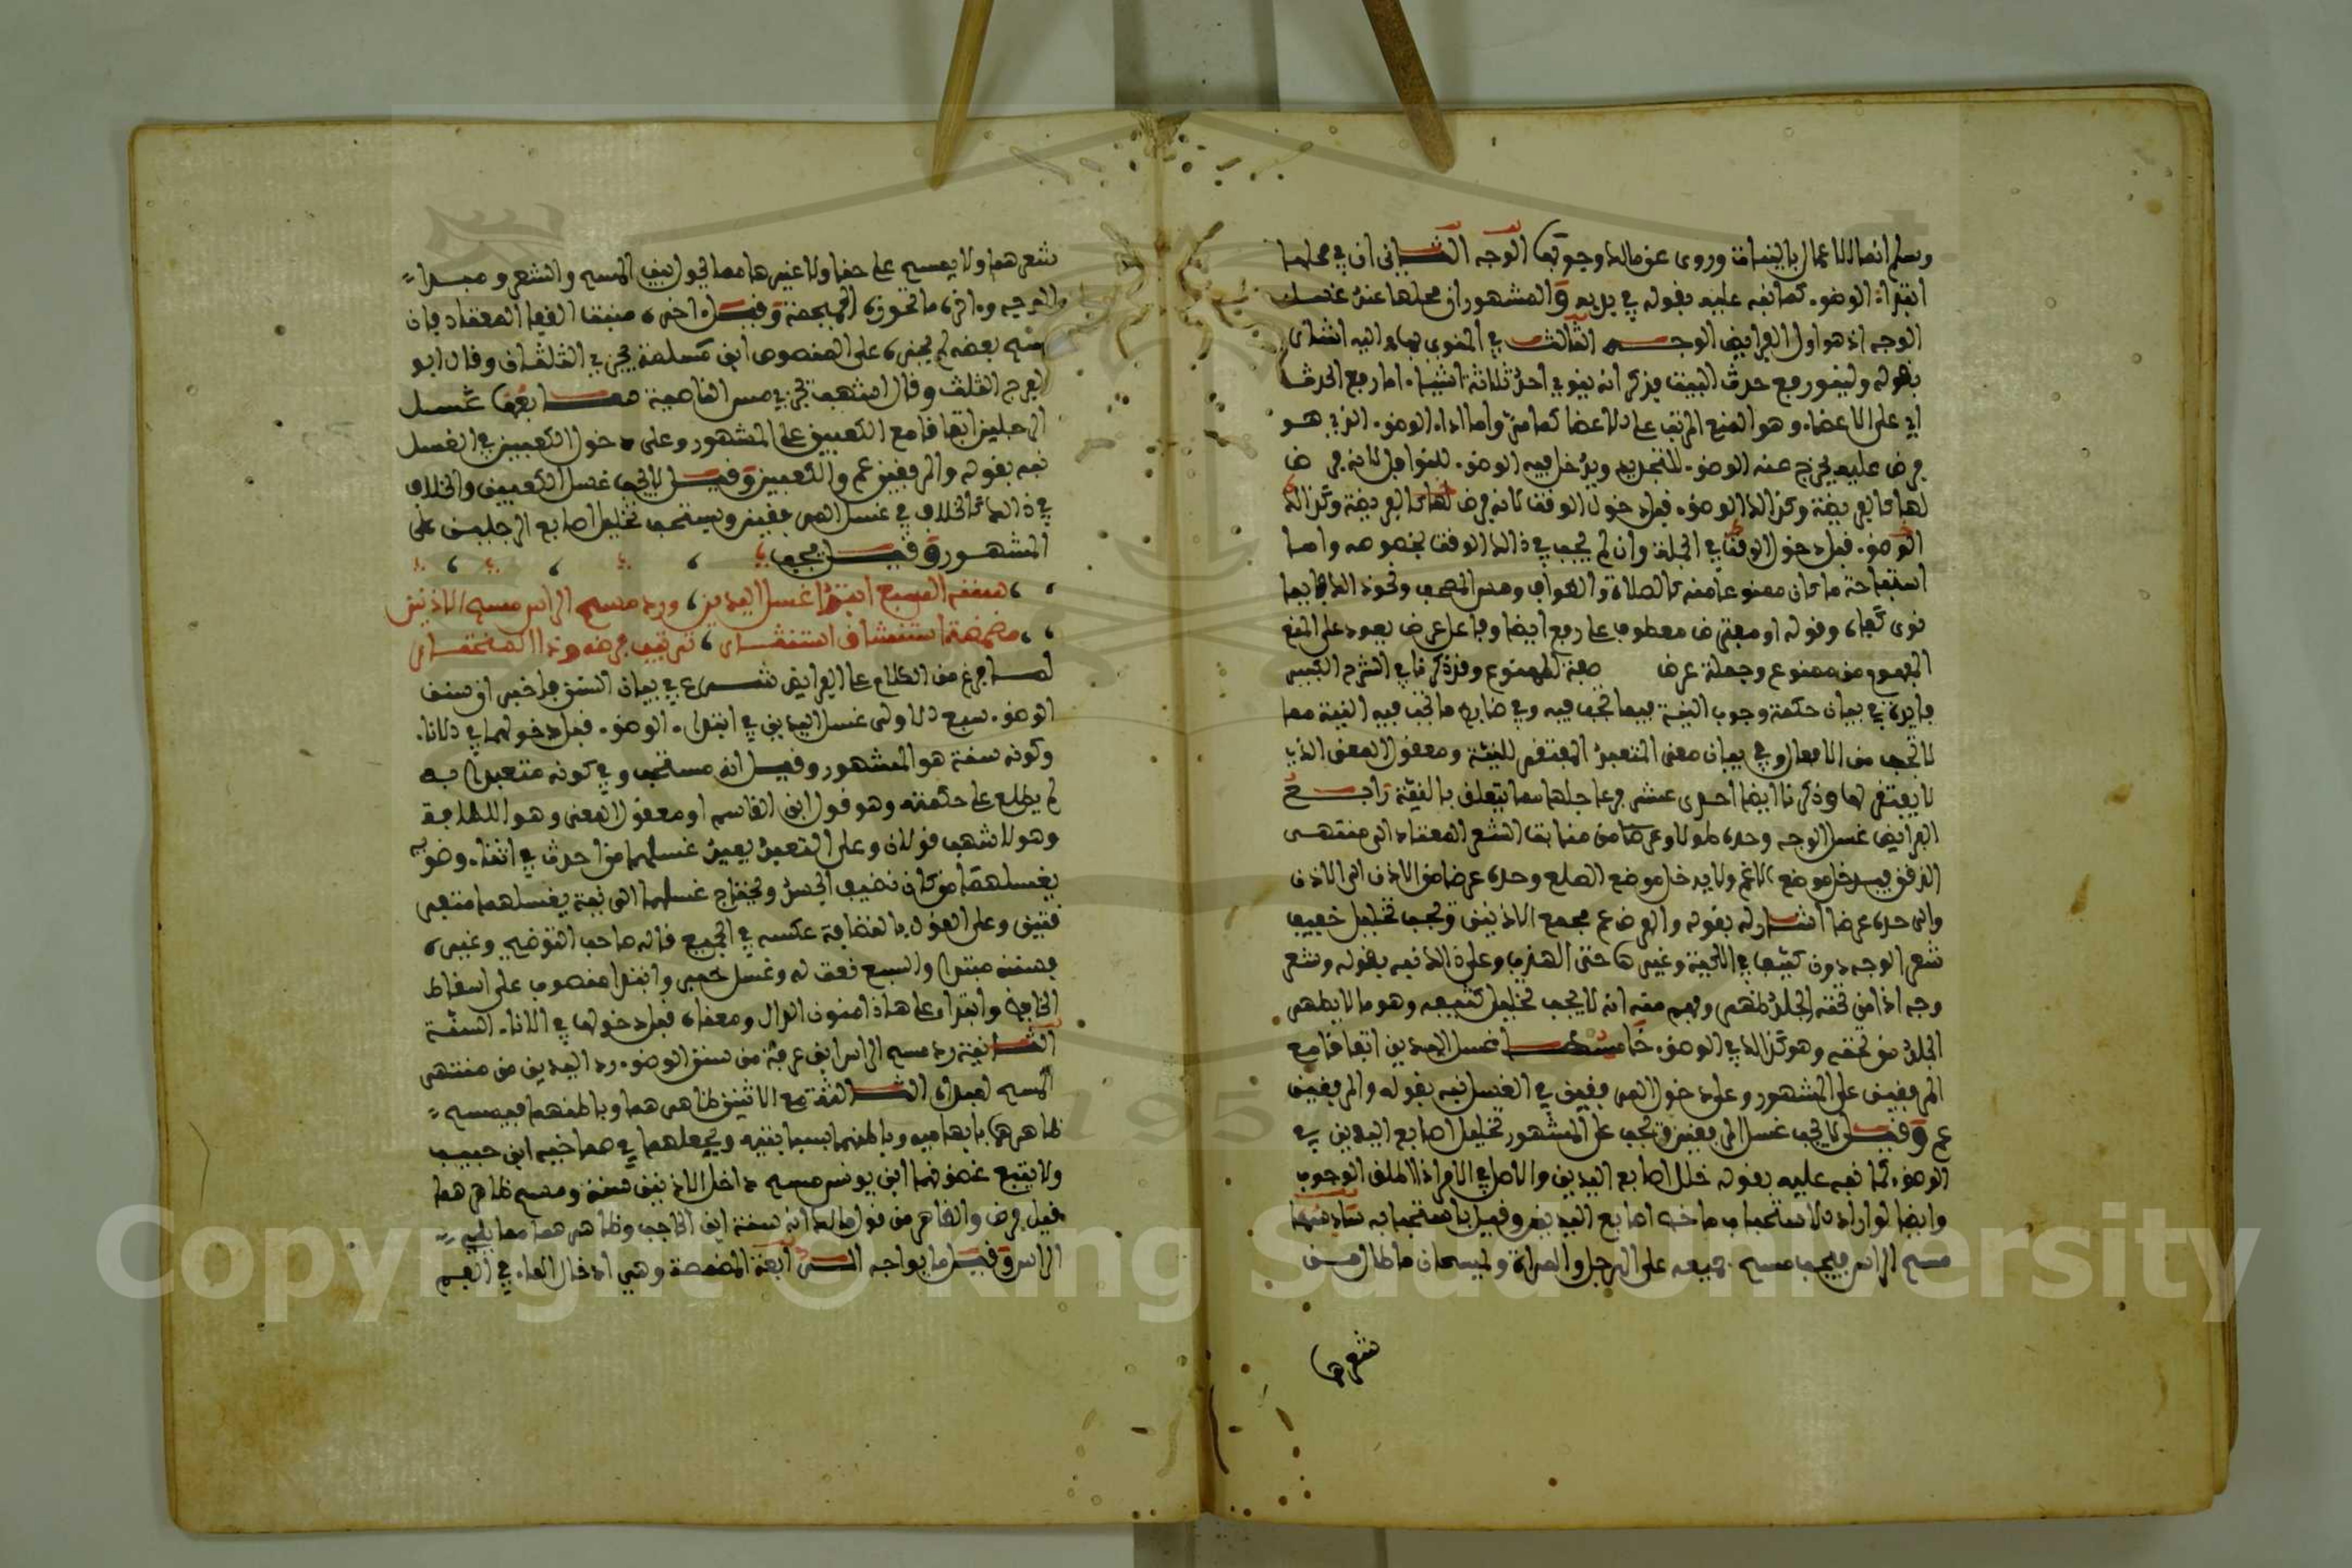 وسلم انما الاعمال بالنيات وروي عن مالك وجوبها الوجه الثاني ان في محلها
ابتداء الوضوء كما نبه عليه بقوله في بدءه والمشهور ان محلها عند غسل
الوجه اذ هو اول الفرايض الوجه الثالث في المنوي بها واليه اشار
بقوله ولينو رفع حدث البيت فذكر انه ينوي احد ثلاثة اشياء اما رفع الحدث
اي على الاعضاء وهو المنع المرتب على الاعضا كما مر واما اداء الوضوء الذي هو
فرض عليه يخرج عنه الوضوء للتجديد ويدخل فيه الوضوء للنوافل لانه فرض
لها كالفريضة وكذا الوضوء قبل دخول الوقت لانه فرض لها كالفريضة وكذا
الوضوء قبل دخول الوقت في الجملة وان لم يجب في ذلك الوقت بخصوصه واما
استباحة ما كان ممنوعا منه كالصلاة والطواف ومس المصحف ونحو ذلك فايها
نوى كفاه وقوله او مفترض معطوف على رفع ايضا وفاعل عرض يعود على المنع
المفهوم من ممنوع وجملة عرض صفة لممنوع وقد ذكرنا في الشرح الكبير
فايدة في بيان حكمة وجوب النية فيما تجب فيه وفي ضابط ما تجب فيه النية مما
لا تجب من الافعال وفي بيان معنى المتعبد المفتقر للنية ومعقول المعنى الذي
لا يفتقر لها وذكرنا ايضا احدى عشر فرعا جلها مما يتعلق بالنية رابع
الفرايض غسل الوجه وحده طولا وعرضا من منابت الشعر المعتاد الى منتهى
الذقن فيدخل موضع الغم ولا يدخل موضع الصلع وحده عرضا من الاذن الى الاذن
والى حده عرضا اشار له بقوله والفرض عم مجمع الاذنين ويجب تخليل خفيف
شعر الوجه دون كثيفها في اللحية وغيرها حتى الهدب وعلى ذلك نبه بقوله وشعر
وجه اذا من تحته الجلد ظهر وفهم منه انه لا يجب تخليل كثيفه وهو ما لا يظهر
الجلد من تحته وهو كذلك في الوضوء خامسها غسل اليدين اتفاقا مع
المرفقين على المشهور وعلى دخول المرفقين في الغسل نبه بقوله والمرفقين
عم وقيل لا يجب غسل المرفقين وتجب على المشهور تخليل اصابع اليدين في
الوضوء كما نبه عليه بقوله خلل اصابع اليدين والاصل في الامر اذا اطلق الوجوب
وايضا لو اراد الاستحباب ما خص اصابع اليدين وقيل باستحبابه سادسها
مسح الراس فيجب مسح جميعه على الرجل والمراة وليمسحان ما طال من
شعرهما
شعرهما ولا يمسح على حنا ولا غيرها مما يحول بين المسح والشعر ومبداه
الوجه واخره ما تحوزه الجمجمة وقيل اخره منبت القفا المعتاد فان
مسح بعضه لم يجزه على المنصوص ابن مسلمة يجزي الثلثان وقال ابو
الفرج الثلث وقال اشهب تجزي مسح الناصية سابعها غسل
الرجلين اتفاقا مع الكعبين على المشهور وعلى دخول الكعبين في الغسل
نبه بقوله والمرفقين عم والكعبين وقيل لا يجب غسل الكعبين والخلاف
في ذلك كالخلاف في غسل المرفقين ويستحب تخليل اصابع الرجلين على
المشهور وقيل يجب
سننه السبع ابتدا غسل اليدين، ورد مسح الراس مسح الاذنين
مضمضة استنشاق استنثار، ترتيب فرضه وذا المختار
لما فرغ من الكلام على الفرايض شرع في بيان السنن فاخبر ان سنن
الوضوء سبع الاولى غسل اليدين في ابتداء الوضوء قبل دخولهما في الاناء
وكونه سنة هو المشهور وقيل انه مستحب وفي كونه متعبدا به
لم يطلع على حكمته وهو قول ابن القاسم او معقول المعنى وهو النظافة
وهو لاشهب قولان وعلى التعبد يعيد غسلهما من احدث في اثناء وضوئه
يغسلهما من كان نظيف الجسد ويحتاج غسلهما الى نية يغسلهما مفتر
قتين وعلى القول بالنظافة عكسه في الجميع قاله صاحب التوضيح وغيره
فسننه مبتدا والسبع نعت له وغسل خبر وابتدا منصوب على اسقاط
الخافض وابتدا على هاذا منون الدال ومعناه قبل دخولها في الاناء السنة
الثانية رد مسح الراس ابن عرفة من سنن الوضوء رد اليدين من منتهى
المسح لمبداه الثالثة مسح الاذنين ظاهرهما وباطنهما فيمسح
ظاهرهما بابهاميه وباطنهما بسبابتيه ويجعلهما في صماخيه ابن حبيب
ولا يتبع غضونهما ابن يونس مسح داخل الاذنين سنة ومسح ظاهرهما
قيل فرض والظاهر من قول مالك انه سنة ابن الحاجب وظاهرهما مما يلي
الراس وقيل ما يواجه الرابعة المضمضة وهي ادخال الماء في الفم
Copyright © King Saud University
195